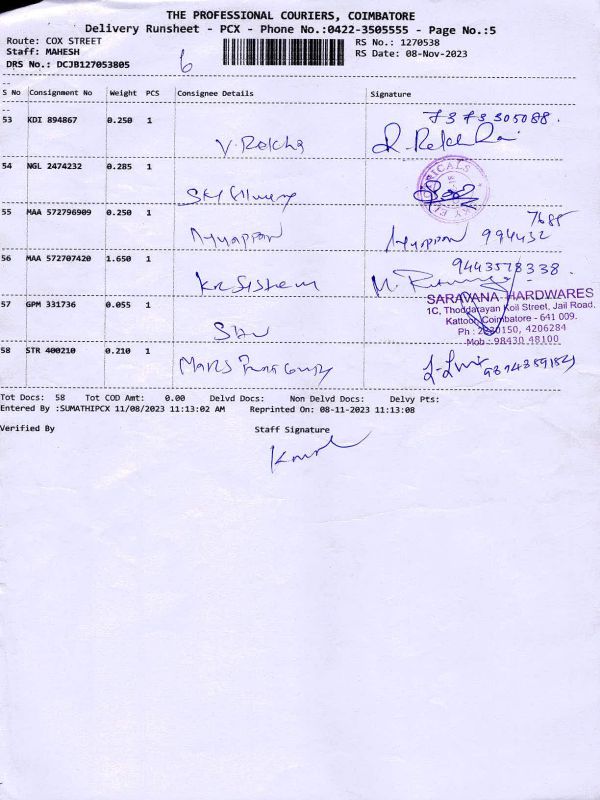 THE PROFESSIONAL COURIERS, COIMBATORE
Delivery Runsheet - PCX - Phone No.:0422-3505555 - Page No.:5
Route: COX STREET
Staff: MAHESH
DRS No.: DCJB127053805
6
RS No.: 1270538
RS Date: 08-Nov-2023
S No Consignment No Weight PCS Consignee Details Signature
53 KDI 894867 0.250 1 V. Rekha
7373305088.
R. Rekha
54 NGL 2474232 0.285 1
55 MAA 572796909 0.250 1 Ayyappan Ayyappan 994432
7685
56 MAA 572707420 1.650 1 KR Sistem
9443578338.
57 GPM 331736 0.055 1
SARAVANA HARDWARES
1C, Thoddarayan Koil Street, Jail Road.
Kattoor, Coimbatore - 641 009.
4206284
Mob : 98430 48100
58 STR 400210 0.210 1
Tot Docs: 58 Tot COD Amt: 0.00 Delvd Docs: Non Delvd Docs: Delvy Pts:
Entered By :SUMATHIPCX 11/08/2023 11:13:02 AM Reprinted On: 08-11-2023 11:13:08
Verified By Staff Signature